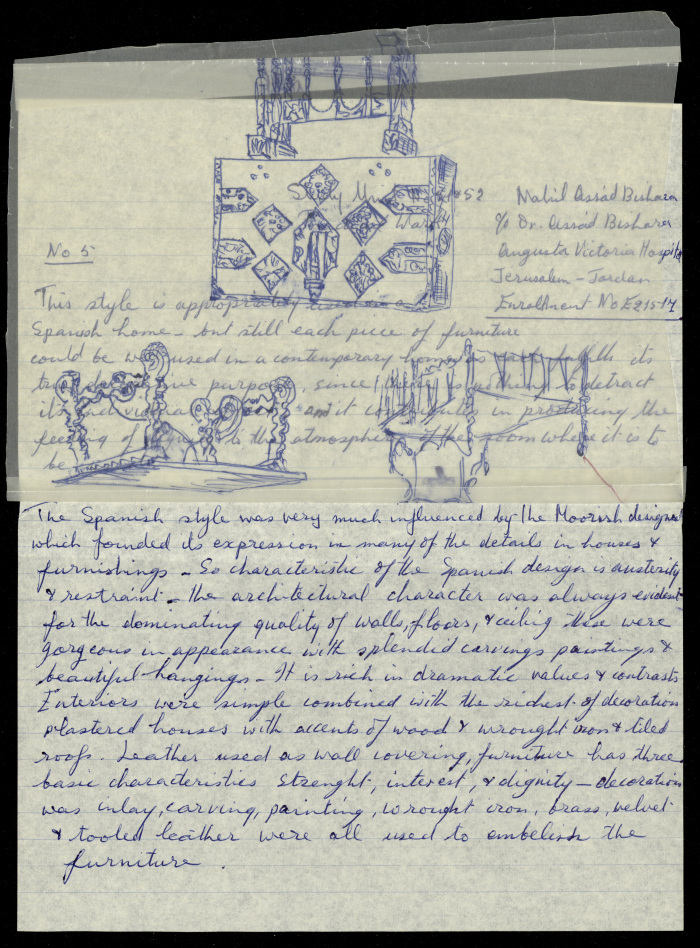 Study Un 52
Nabil Assad Bishara
c/o Dr. Assad Bishara
Augusta Victoria Hospita
Jerusalem - Jordan
Enrollment No E21517
No 5
This style is appropriately used in a
Spanish home - but still each piece of furniture
could be used in a contemporary home as its
purpose, since there is nothing to detract
its and it contributes in producing the
feeling of to the atmosphere of the room where it is to
be
The Spanish style was very much influenced by the Moorish designed
which founded its expression in many of the details in houses &
furnishings - So characteristic of the Spanish design is austerity
& restraint - the architectural character was always evident
for the dominating quality of walls, floors, & ceiling these were
gorgeous in appearance with splendid carvings paintings &
beautiful hangings - It is rich in dramatic values & contrasts
Interiors were simple combined with the richest of decoration
plastered houses with accents of wood & wrought iron & tiled
roofs. Leather used as wall covering, furniture has three
basic characteristics strenght, interest, & dignity - decoration
was inlay, carving, painting, wrought iron, brass, velvet
& tooled leather were all used to embelish the
furniture.